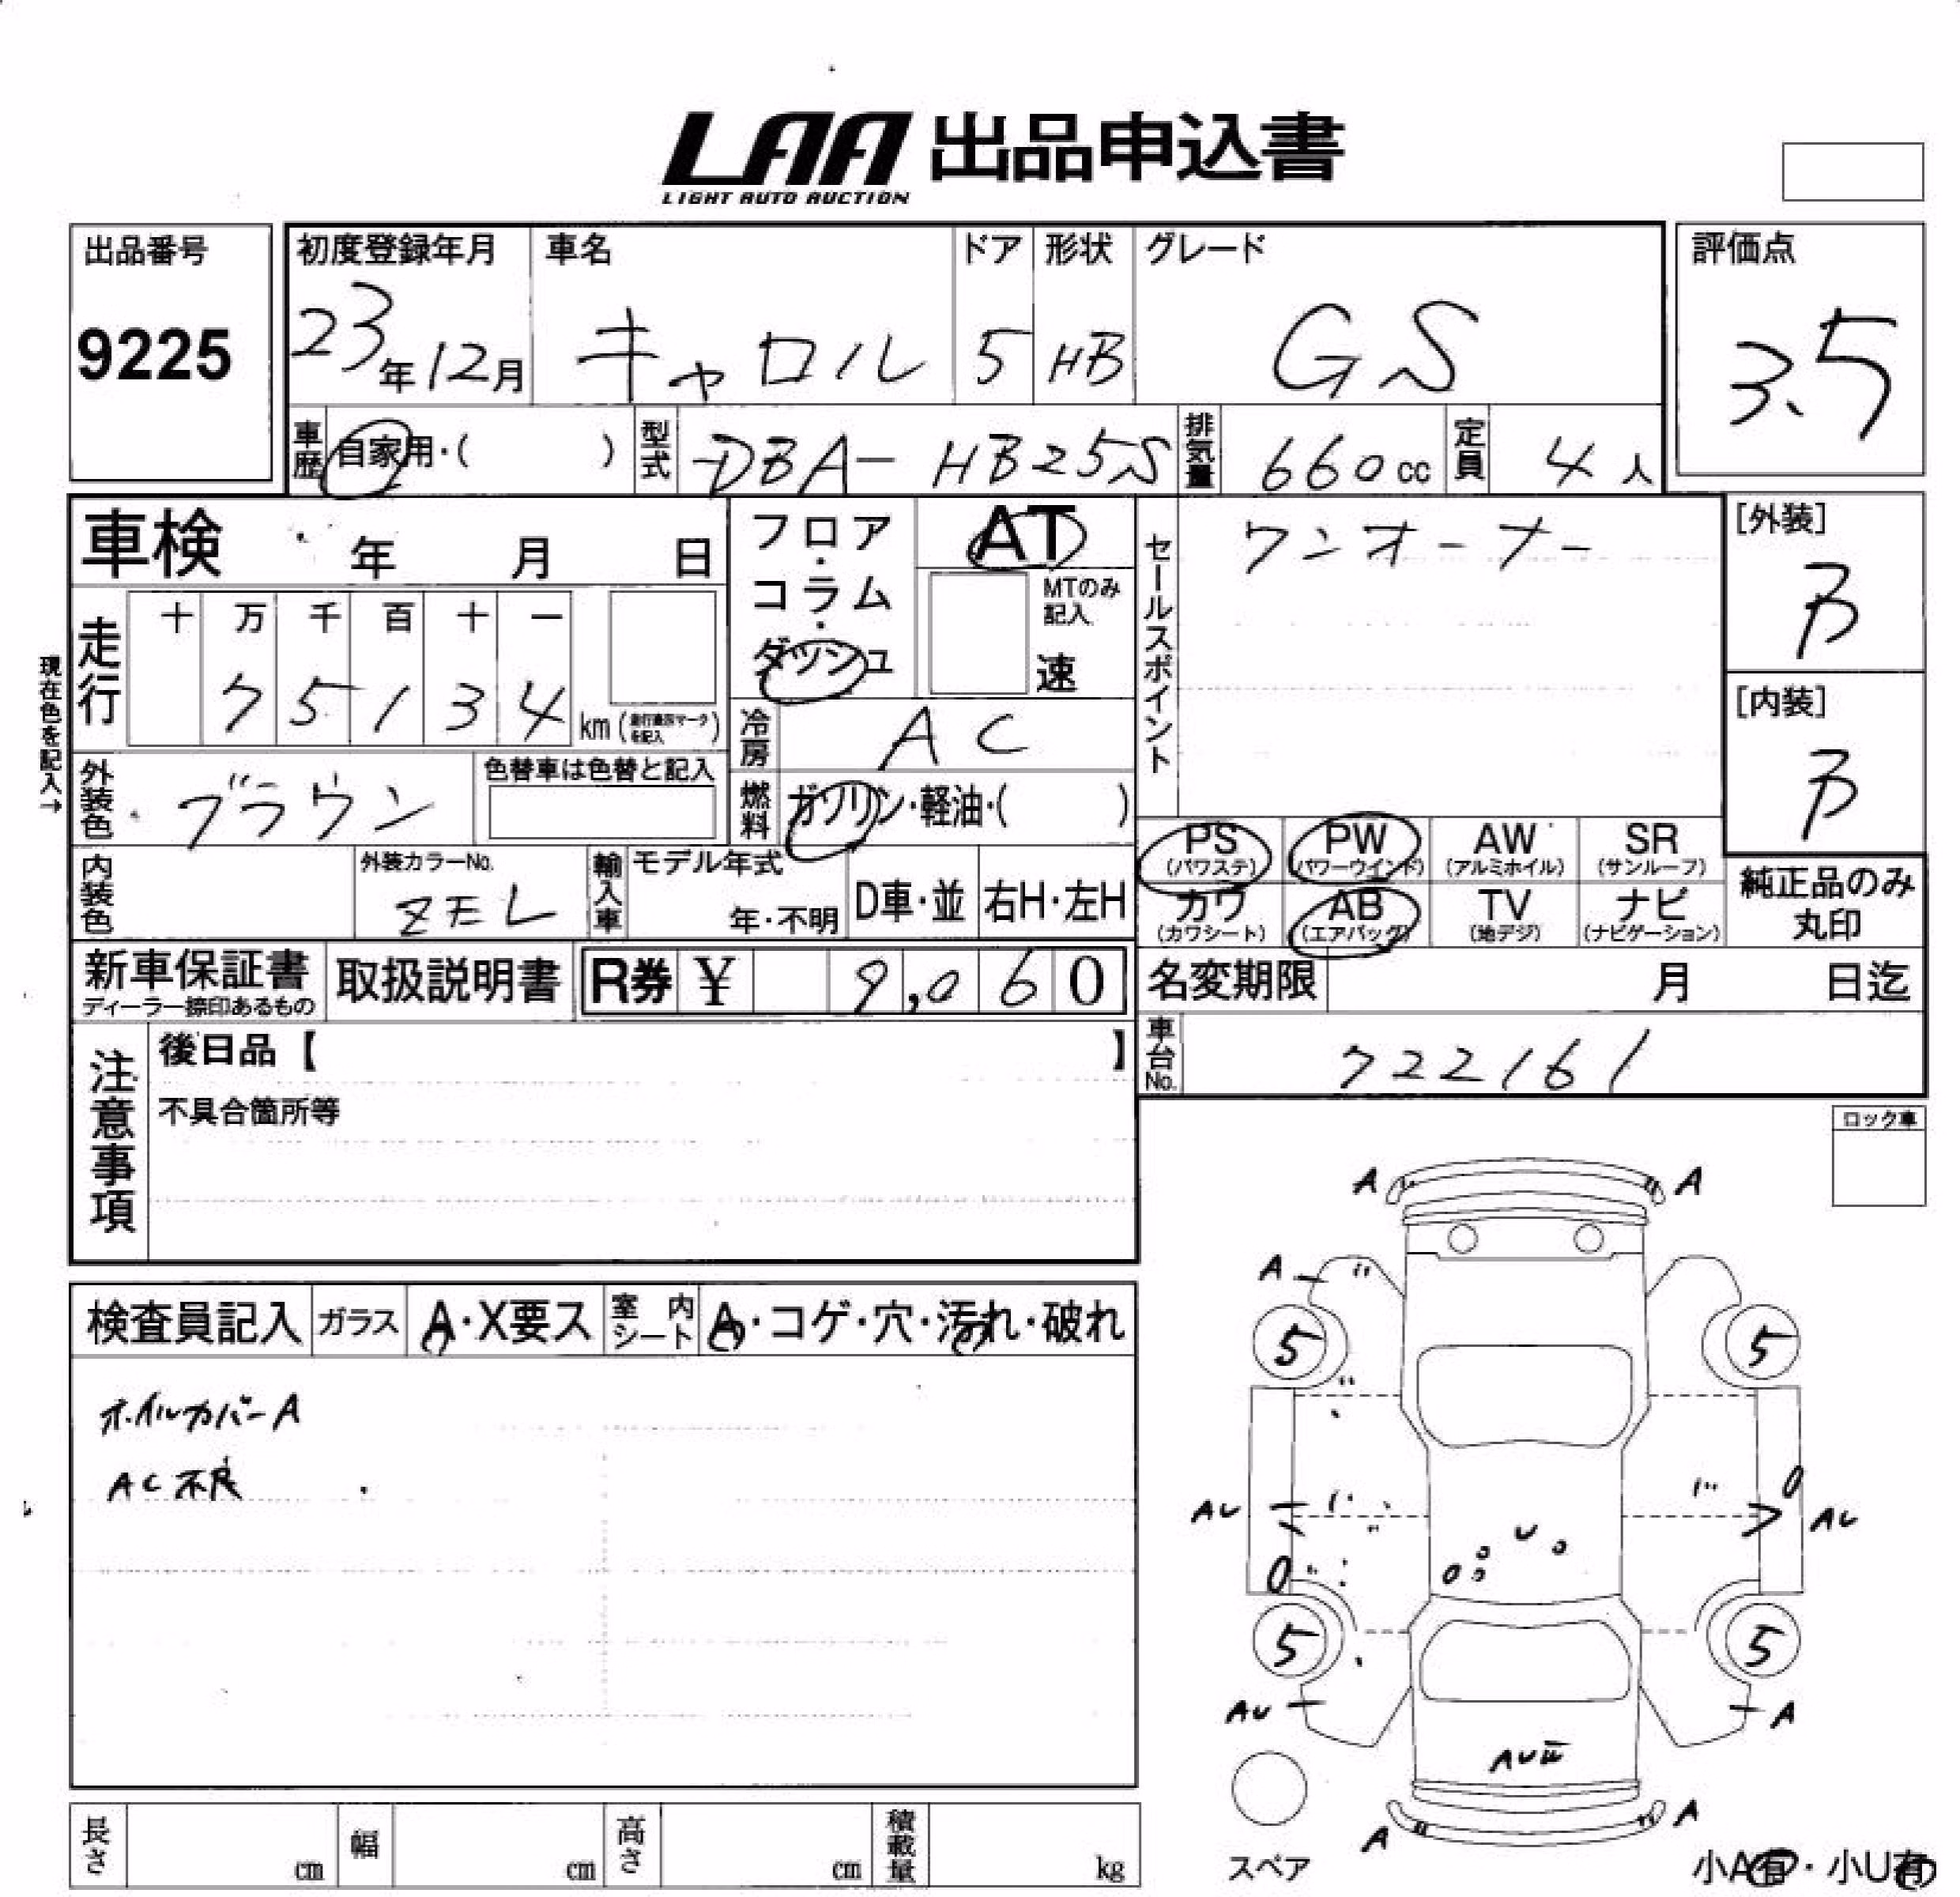 LAA 出品申込書
LIGHT AUTO AUCTION
出品番号
9225
初度登録年月
23年12月
車名
キャロル
ドア
5
形状
HB
グレード
GS
評価点
3.5
車歴 自家用・( )
型式 DBA-HB25S
排気量 660cc
定員 4人
車検 年 月 日
フロア・コラム・ダッシュ
AT
MTのみ記入
速
セールスポイント
ワンオーナー
[外装]
B
[内装]
B
現在色を記入→
走行
十 万 千 百 十 一
7 5 1 3 4 km
冷房 AC
外装色 ブラウン
色替車は色替と記入
燃料 ガソリン・軽油・( )
内装色
外装カラーNo.
ZEL
輸入車
モデル年式
年・不明
D車・並
右H・左H
PS
(パワステ)
PW
(パワーウインド)
AW
(アルミホイル)
SR
(サンルーフ)
カワ
(カワシート)
AB
(エアバッグ)
TV
(地デジ)
ナビ
(ナビゲーション)
純正品のみ
丸印
新車保証書
ディーラー捺印あるもの
取扱説明書
R券 ¥ 9,060
名変期限 月 日迄
車台No. 722161
注意事項
後日品【 】
不具合箇所等
ロック車
検査員記入
ガラス
A・X要ス
室内シート
A・コゲ・穴・汚れ・破れ
ホイルカバーA
AC不良
A
A
A
5
5
AU
AU
U
5
5
AU
A
AU
A
A
スペア
小A有・小U有
長さ cm
幅 cm
高さ cm
積載量 kg